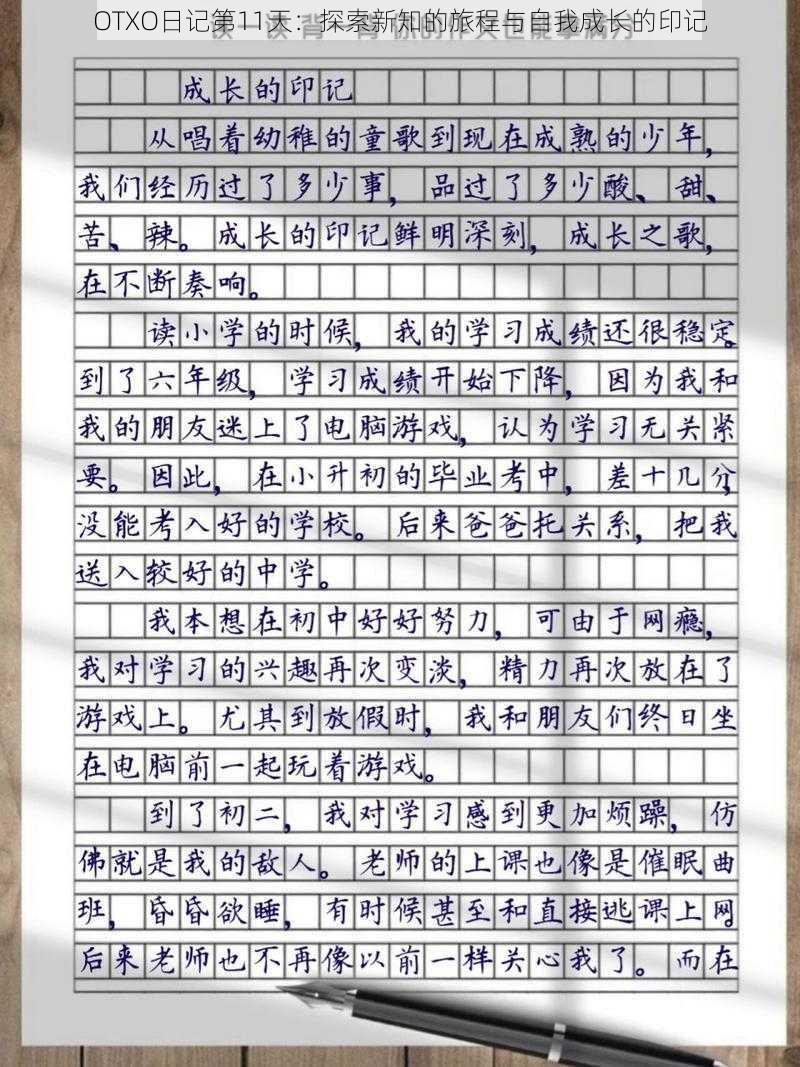 OTXO日记第11天：探索新知的旅程与自我成长的印记
成长的印记
从唱着幼稚的童歌到现在成熟的少年，
我们经历过了多少事，品过了多少酸、甜、
苦、辣。成长的印记鲜明深刻，成长之歌，
在不断奏响。
读小学的时候，我的学习成绩还很稳定。
到了六年级，学习成绩开始下降，因为我和
我的朋友迷上了电脑游戏，认为学习无关紧
要。因此，在小升初的毕业考中，差十几分，
没能考入好的学校。后来爸爸托关系，把我
送入较好的中学。
我本想在初中好好努力，可由于网瘾，
我对学习的兴趣再次变淡，精力再次放在了
游戏上。尤其到放假时，我和朋友们终日坐
在电脑前一起玩着游戏。
到了初二，我对学习感到更加烦躁，仿
佛就是我的敌人。老师的上课也像是催眠曲
班，昏昏欲睡，有时候甚至和直接逃课上网。
后来老师也不再像以前一样关心我了。而在